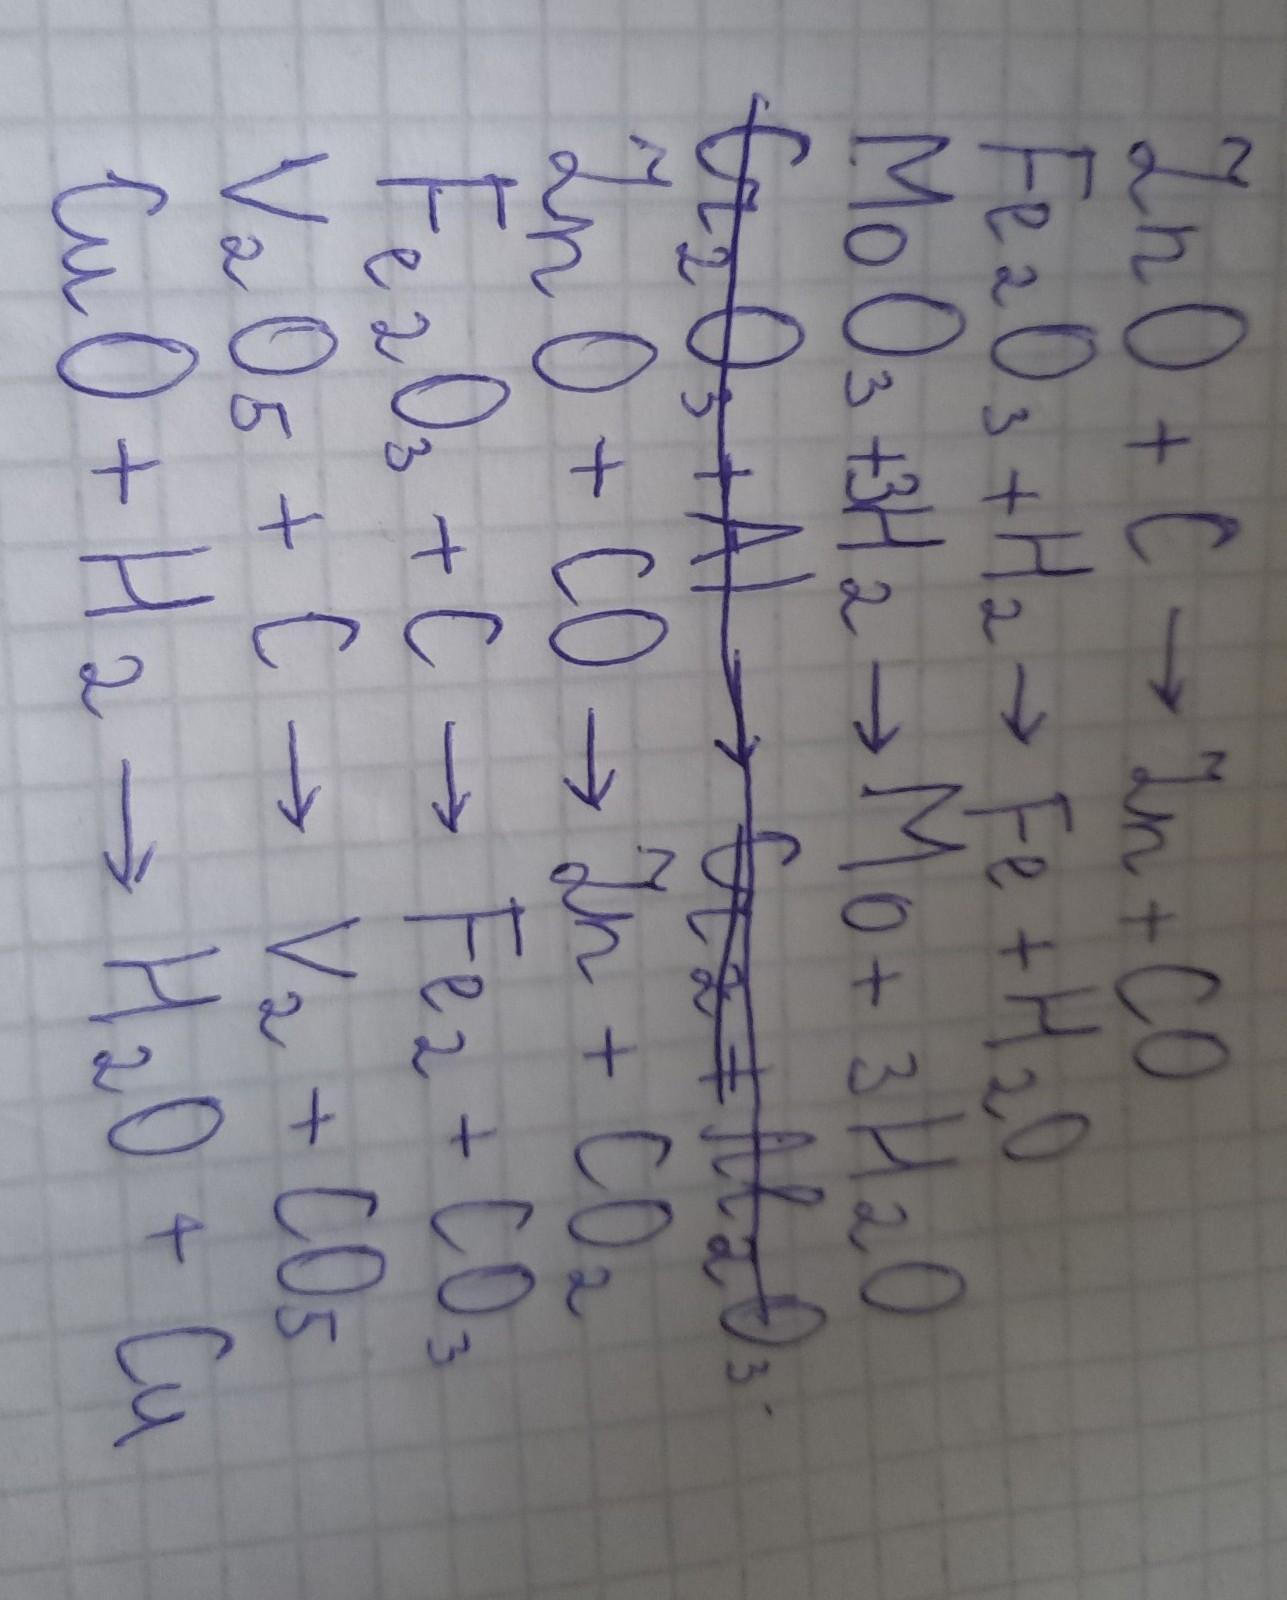 ZnO + C → Zn + CO
Fe₂O₃ + H₂ → Fe + H₂O
MoO₃ + 3H₂ → Mo + 3H₂O
Cr₂O₃ + Al → Cr₂ + Al₂O₃.
ZnO + CO → Zn + CO₂
Fe₂O₃ + C → Fe₂ + CO₃
V₂O₅ + C → V₂ + CO₅
CuO + H₂ → H₂O + Cu